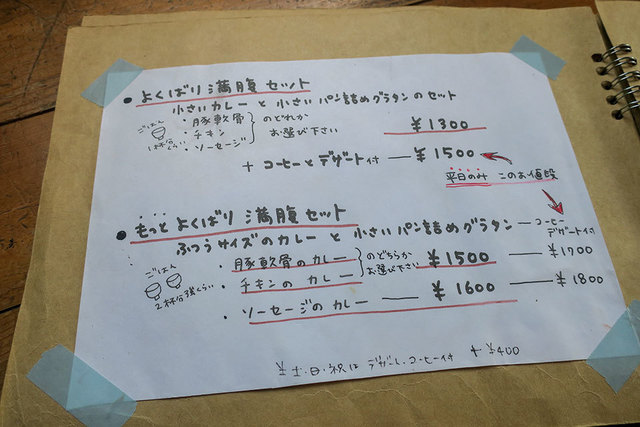 ● よくばり満腹セット
小さいカレーと小さいパン詰めグラタンのセット
ごはん 1杯くらい
・豚軟骨
・チキン
・ソーセージ
のどれか
お選び下さい
¥1300
+ コーヒーとデザート付 — ¥1500
平日のみ このお値段
● もっとよくばり満腹セット
ふつうサイズのカレーと小さいパン詰めグラタン — コーヒー
デザート付
ごはん 2杯分強くらい
・豚軟骨のカレー
・チキンのカレー
のどちらか
お選び下さい
¥1500 — ¥1700
・ソーセージのカレー — ¥1600 — ¥1800
土・日・祝は デザート、コーヒー付 + ¥400